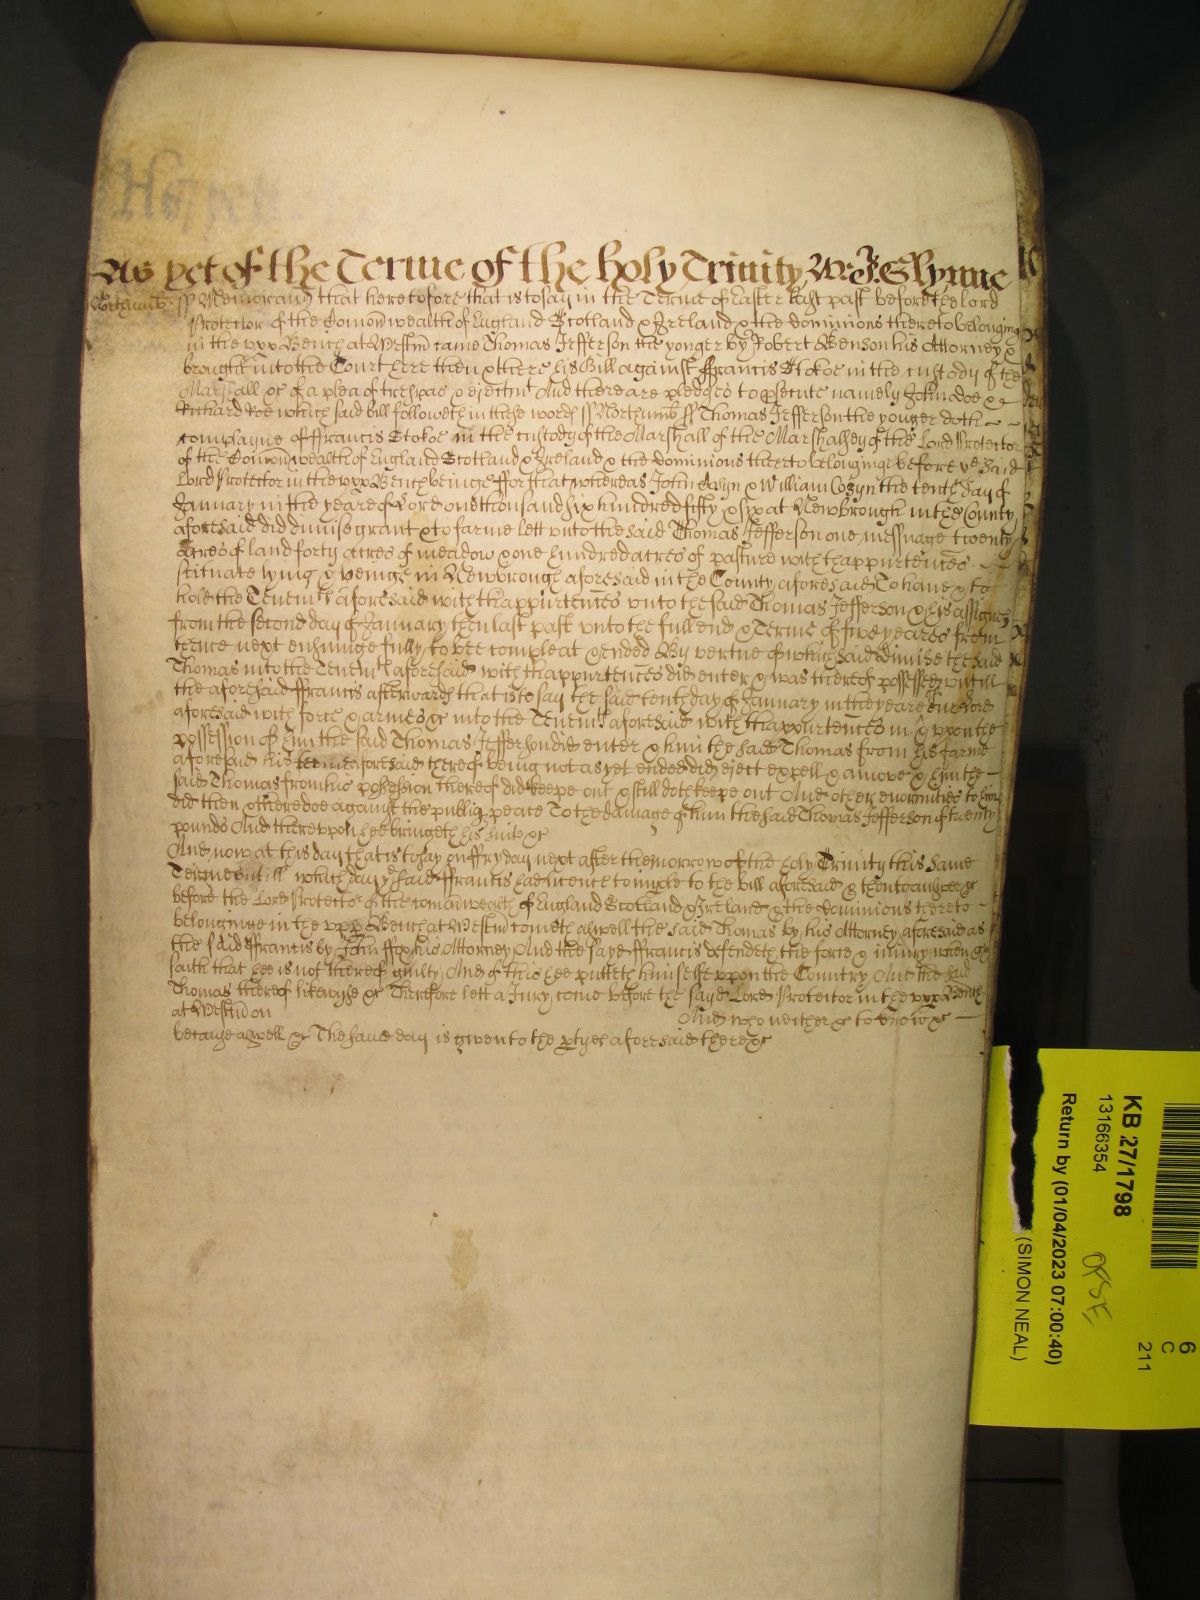 As yet of the Terme of the holy Trinity, Wr. J. Glynne
Northumb ss Memorand that heretofore that is to say in the Terme of Easter last past before the lord
Protector of the Comonwealth of England Scotland & Ireland & the dominions thereto belonging
in the vpp Bench at Westm came Thomas Jefferson the yonger by Robert Benson his Attorney &
brought into the Court here then & there his Bill against ffrancis Stokoe in the custody of the
Marshall &c of a plea of trespas & ejectmt And there are pledges to psecute namely John doe &
Richard Roe which said bill followeth in these words ss Northumb ss Thomas Jefferson the yonger doth
complayne of ffrancis Stokoe in the custody of the Marshall of the Marshalsey of the Lord Protector
of the Comonwealth of England Scotland & Ireland & the dominions thereto belonginge before ye said
Lord Protector in the vpp Bench beinge ffor that whereas John & William the tenth day of
January in the yeare of or Lord one thousand six hundred fifty & six at Newbrough in the County
aforesaid did dimise grant & to farme lett vnto the said Thomas Jefferson one messuage twenty
acres of land forty acres of meadow & one hundred acres of pasture with thappurtences
scituate lying & beinge in Newbrough aforesaid in the County aforesaid To haue & to
hold the Tenemts aforesaid with thappurtences vnto the said Thomas Jefferson & his assignes
from the second day of January then last past vnto the full end & Terme of five yeares from
thence next ensuinge fully to bee compleat & ended By vertue of which said dimise the said
Thomas into the Tenemts aforesaid with thappurtences did enter & was thereof possessed vntill
the aforesaid ffrancis afterwards that is to say the said tenth day of January in the yeare of our Lord
aforesaid with force & armes &c into the Tenemts aforesaid with thappurtences in & vpon the
possession of him the said Thomas Jefferson did enter & him the said Thomas from his farme
aforesaid his terme aforesaid thereof being not as yet ended did eject expell & amove & him the
said Thomas from his possession thereof did keepe out & still doth keepe out And other enormities to him
did then & there doe against the publiq peace To the damage of him the said Thomas Jefferson of twenty
pounds And therevpon hee bringeth his suite &c
And now at this day that is to say on ffryday next after the morrow of the holy Trinity this same
Terme vntill which day ye said ffrancis had licence to imple to the bill aforesaid & then to answer &c
before the Lord Protector of the comonwealth of England Scotland & Ireland & the dominions thereto
belonginge in the vpp Bench at Westm cometh aswell the said Thomas by his Attorney aforesaid as
the said ffrancis by John ffox his Attorney And the sayd ffrancis defendeth the force & iniury when &c
saith that hee is not thereof guilty And of this hee putteth himselfe vpon the Country And the said
Thomas thereof likewyse &c Therefore lett a Jury come before the sayd Lord Protector in the vpp Bench
at Westm on And who neither &c to know &c
because aswell &c The same day is given to the ptyes aforesaid there &c
KB 27/1798
13166354
Return by (01/04/2023 07:00:40)
(SIMON NEAL)
6
C
211